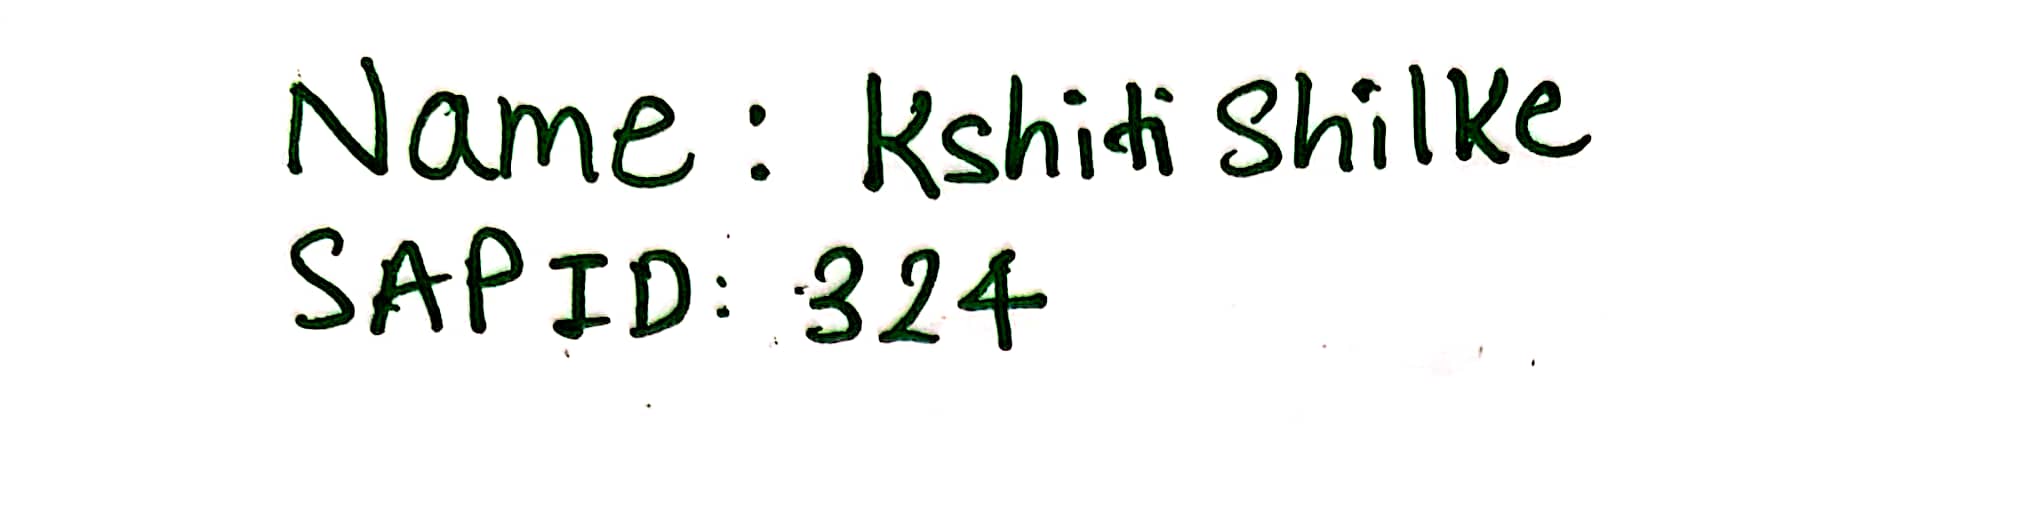 Name : Kshiti Shilke
SAP ID: 324